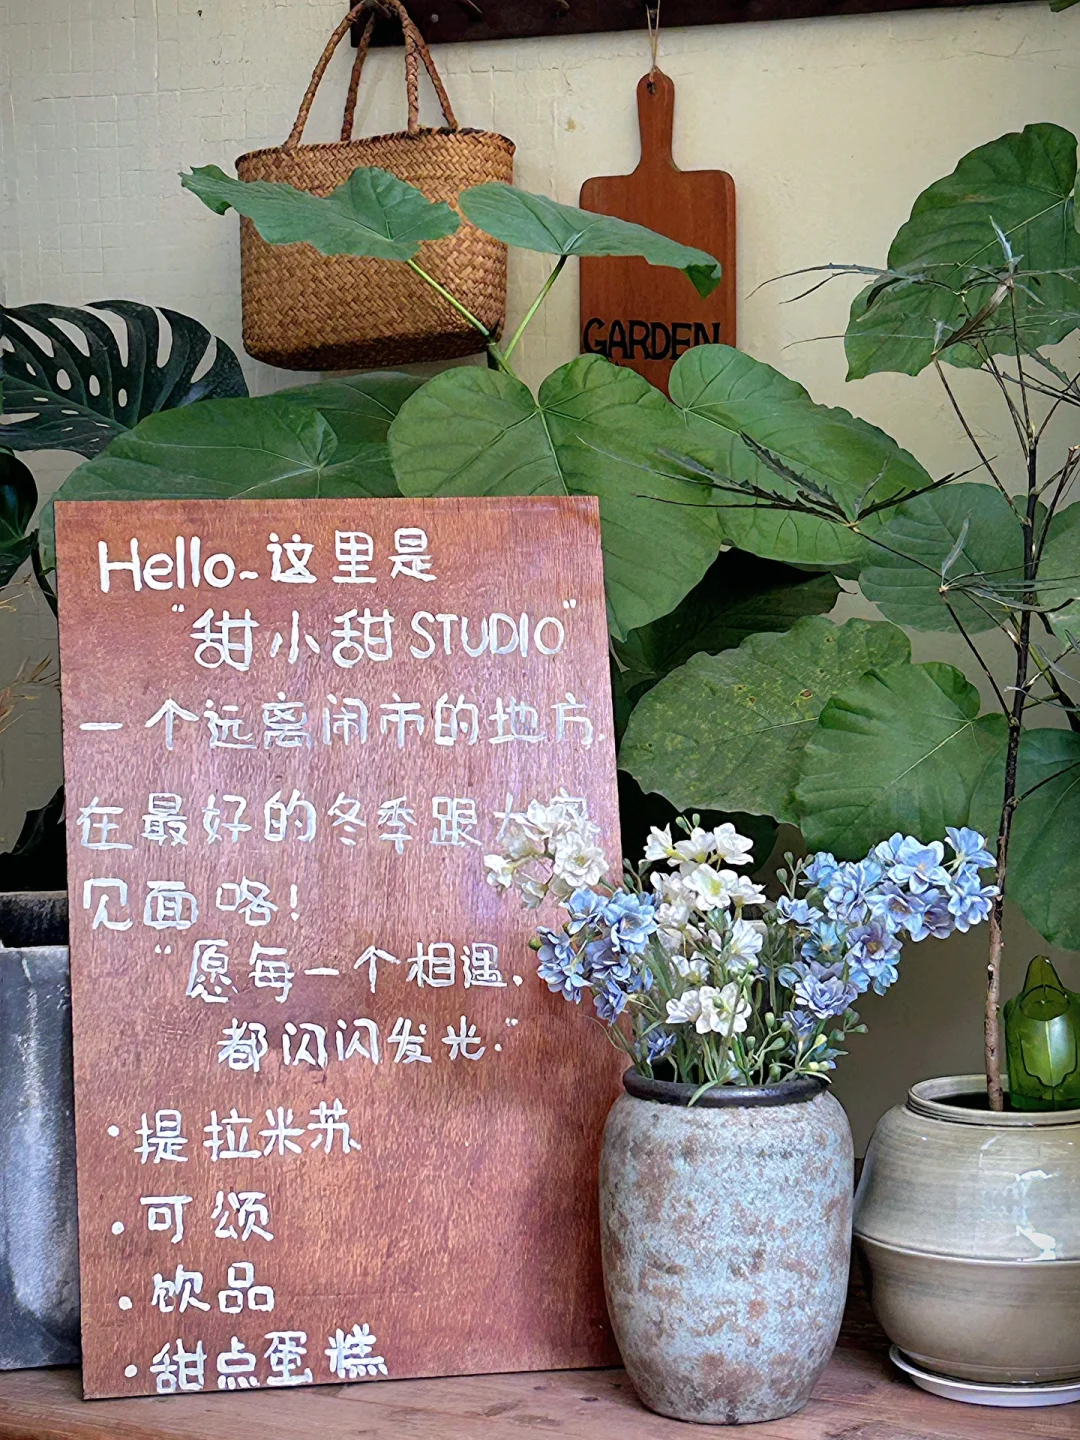 GARDEN
Hello~这里是
“甜小甜STUDIO”
一个远离闹市的地方,
在最好的冬季跟大家
见面咯!
“愿每一个相遇,
都闪闪发光.”
·提拉米苏
·可颂
·饮品
·甜点蛋糕